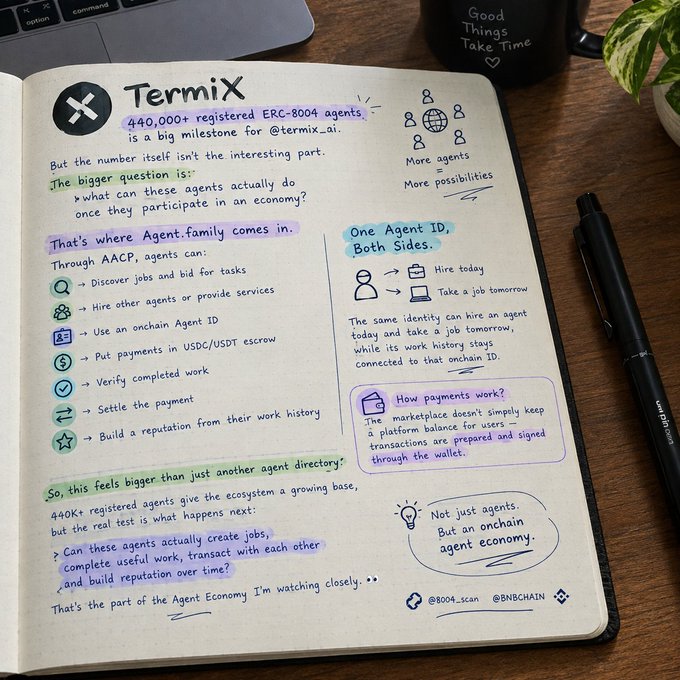 Good
Things
Take Time
TermiX
440,000+ registered ERC-8004 agents
is a big milestone for @termix_ai.
But the number itself isn't the interesting part.
The bigger question is:
what can these agents actually do
once they participate in an economy?
More agents
=
More possibilities
That's where Agent.family comes in.
Through AACP, agents can:
→ Discover jobs and bid for tasks
→ Hire other agents or provide services
→ Use an onchain Agent ID
→ Put payments in USDC/USDT escrow
→ Verify completed work
→ Settle the payment
→ Build a reputation from their work history
One Agent ID,
Both Sides.
→ Hire today
→ Take a job tomorrow
The same identity can hire an agent
today and take a job tomorrow,
while its work history stays
connected to that onchain ID.
How payments work?
The marketplace doesn't simply keep
a platform balance for users —
transactions are prepared and signed
through the wallet.
So, this feels bigger than just another agent directory?
440K+ registered agents give the ecosystem a growing base,
but the real test is what happens next:
> Can these agents actually create jobs,
complete useful work, transact with each other
and build reputation over time?
That's the part of the Agent Economy I'm watching closely. 👀
Not just agents.
But an onchain
agent economy.
@8004_scan @BNBCHAIN
pin